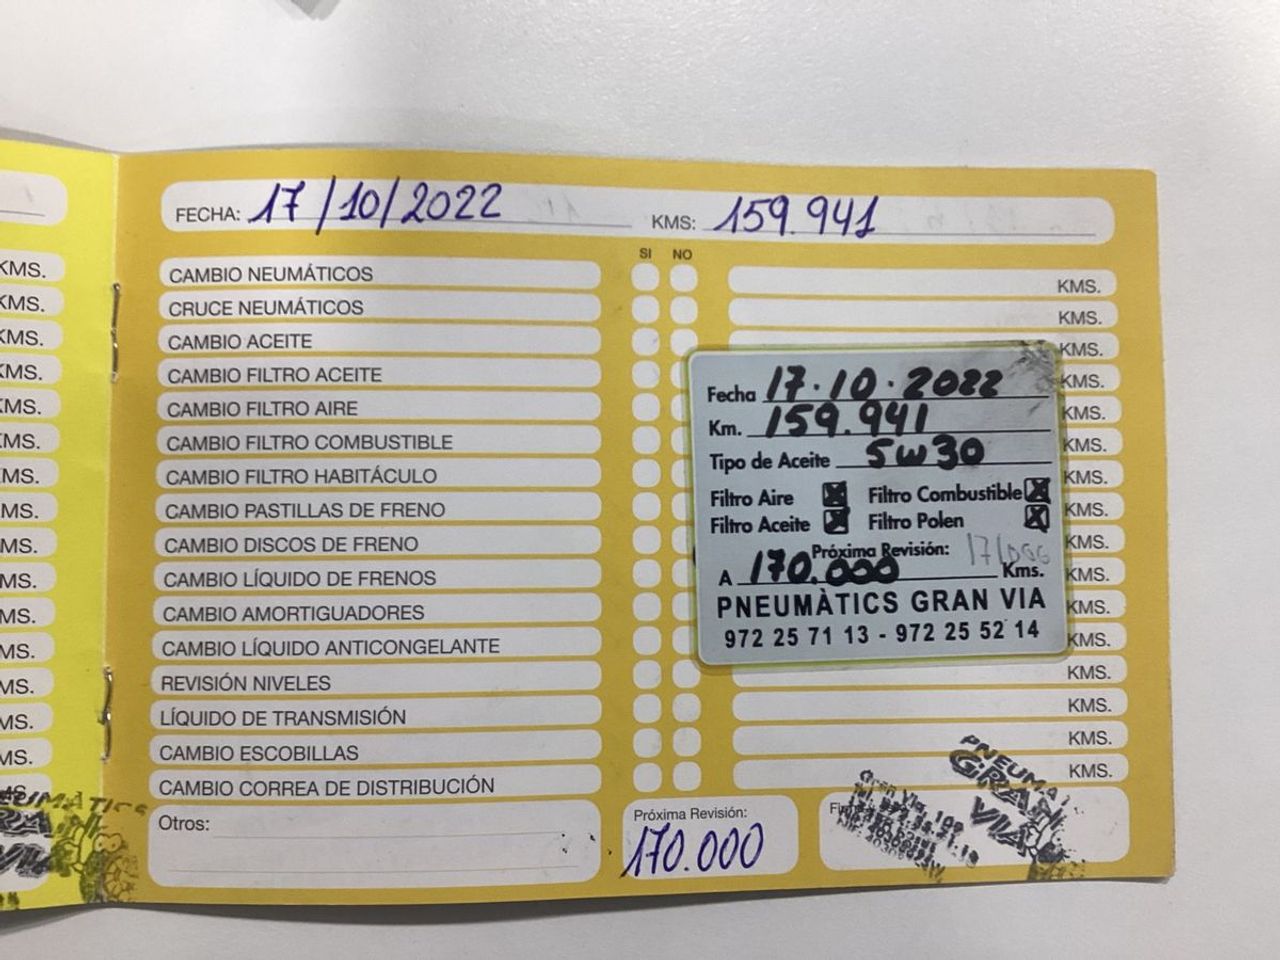 FECHA: 17/10/2022 KMS: 159.941
SI NO
CAMBIO NEUMÁTICOS KMS.
CRUCE NEUMÁTICOS KMS.
CAMBIO ACEITE KMS.
CAMBIO FILTRO ACEITE KMS.
CAMBIO FILTRO AIRE KMS.
CAMBIO FILTRO COMBUSTIBLE KMS.
CAMBIO FILTRO HABITÁCULO KMS.
CAMBIO PASTILLAS DE FRENO KMS.
CAMBIO DISCOS DE FRENO KMS.
CAMBIO LÍQUIDO DE FRENOS KMS.
CAMBIO AMORTIGUADORES KMS.
CAMBIO LÍQUIDO ANTICONGELANTE KMS.
REVISIÓN NIVELES KMS.
LÍQUIDO DE TRANSMISIÓN KMS.
CAMBIO ESCOBILLAS KMS.
CAMBIO CORREA DE DISTRIBUCIÓN KMS.
Otros:
Próxima Revisión:
170.000
Fecha 17.10.2022
Km. 159.941
Tipo de Aceite 5W30
Filtro Aire Filtro Combustible
Filtro Aceite Filtro Polen
Próxima Revisión:
A 170.000 Kms.
PNEUMÀTICS GRAN VIA
972 25 71 13 - 972 25 52 14
PNEUMÀ
GRAN
VIA
Gran Via, 109
KMS.
KMS.
KMS.
KMS.
KMS.
KMS.
MS.
MS.
MS.
MS.
MS.
MS.
MS.
MS.
MS.